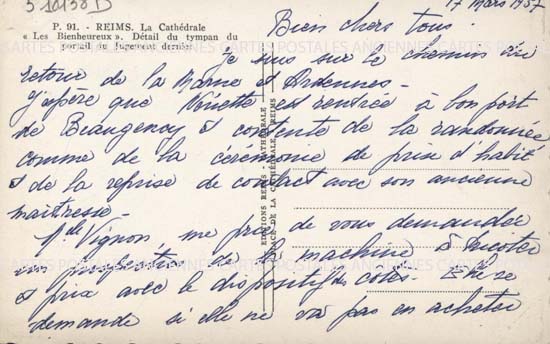 5 10138 D
P. 91. - REIMS. La Cathédrale
« Les Bienheureux ». Détail du tympan du
portail du Jugement dernier
17 Mars 1957
Bien chers tous.
Je suis sur le chemin du
retour de la Marne et Ardennes -
J'espère que Ninette est rentrée à bon port
de Beaugency et contente de la randonnée
comme de la cérémonie de prise d'habit
et de la reprise de contact avec son ancienne
maîtresse -
Mlle Vignon me prie de vous demander
un prospectus de la machine à tricoter
et prix avec le dispositif des côtes. Elle se
demande si elle ne va pas en acheter
EDITIONS REIMS-CATHÉDRALE
PLACE DE LA CATHÉDRALE - REIMS
CARTES POSTALES ANCIENNES CARTES POSTALES ANCIENNES